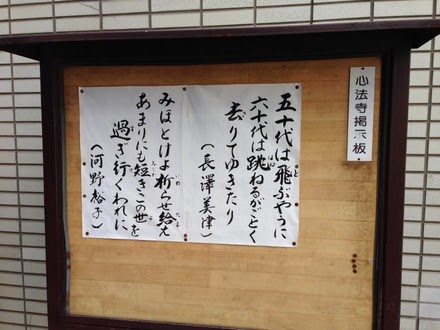 心法寺掲示板
五十代は飛ぶやうに
六十代は跳ねるがごとく
去りてゆきたり
（長澤美津）
みほとけよ祈らせ給え
あまりにも短きこの世を
過ぎ行くわれに
（河野裕子）